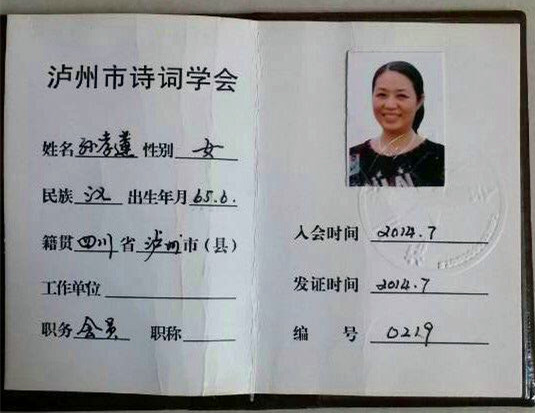 泸州市诗词学会
姓名 孙孝莲 性别 女
民族 汉 出生年月 65.6.
籍贯 四川 省 泸州 市（县）
工作单位
职务 会员 职称
入会时间 2014.7
发证时间 2014.7
编 号 0219